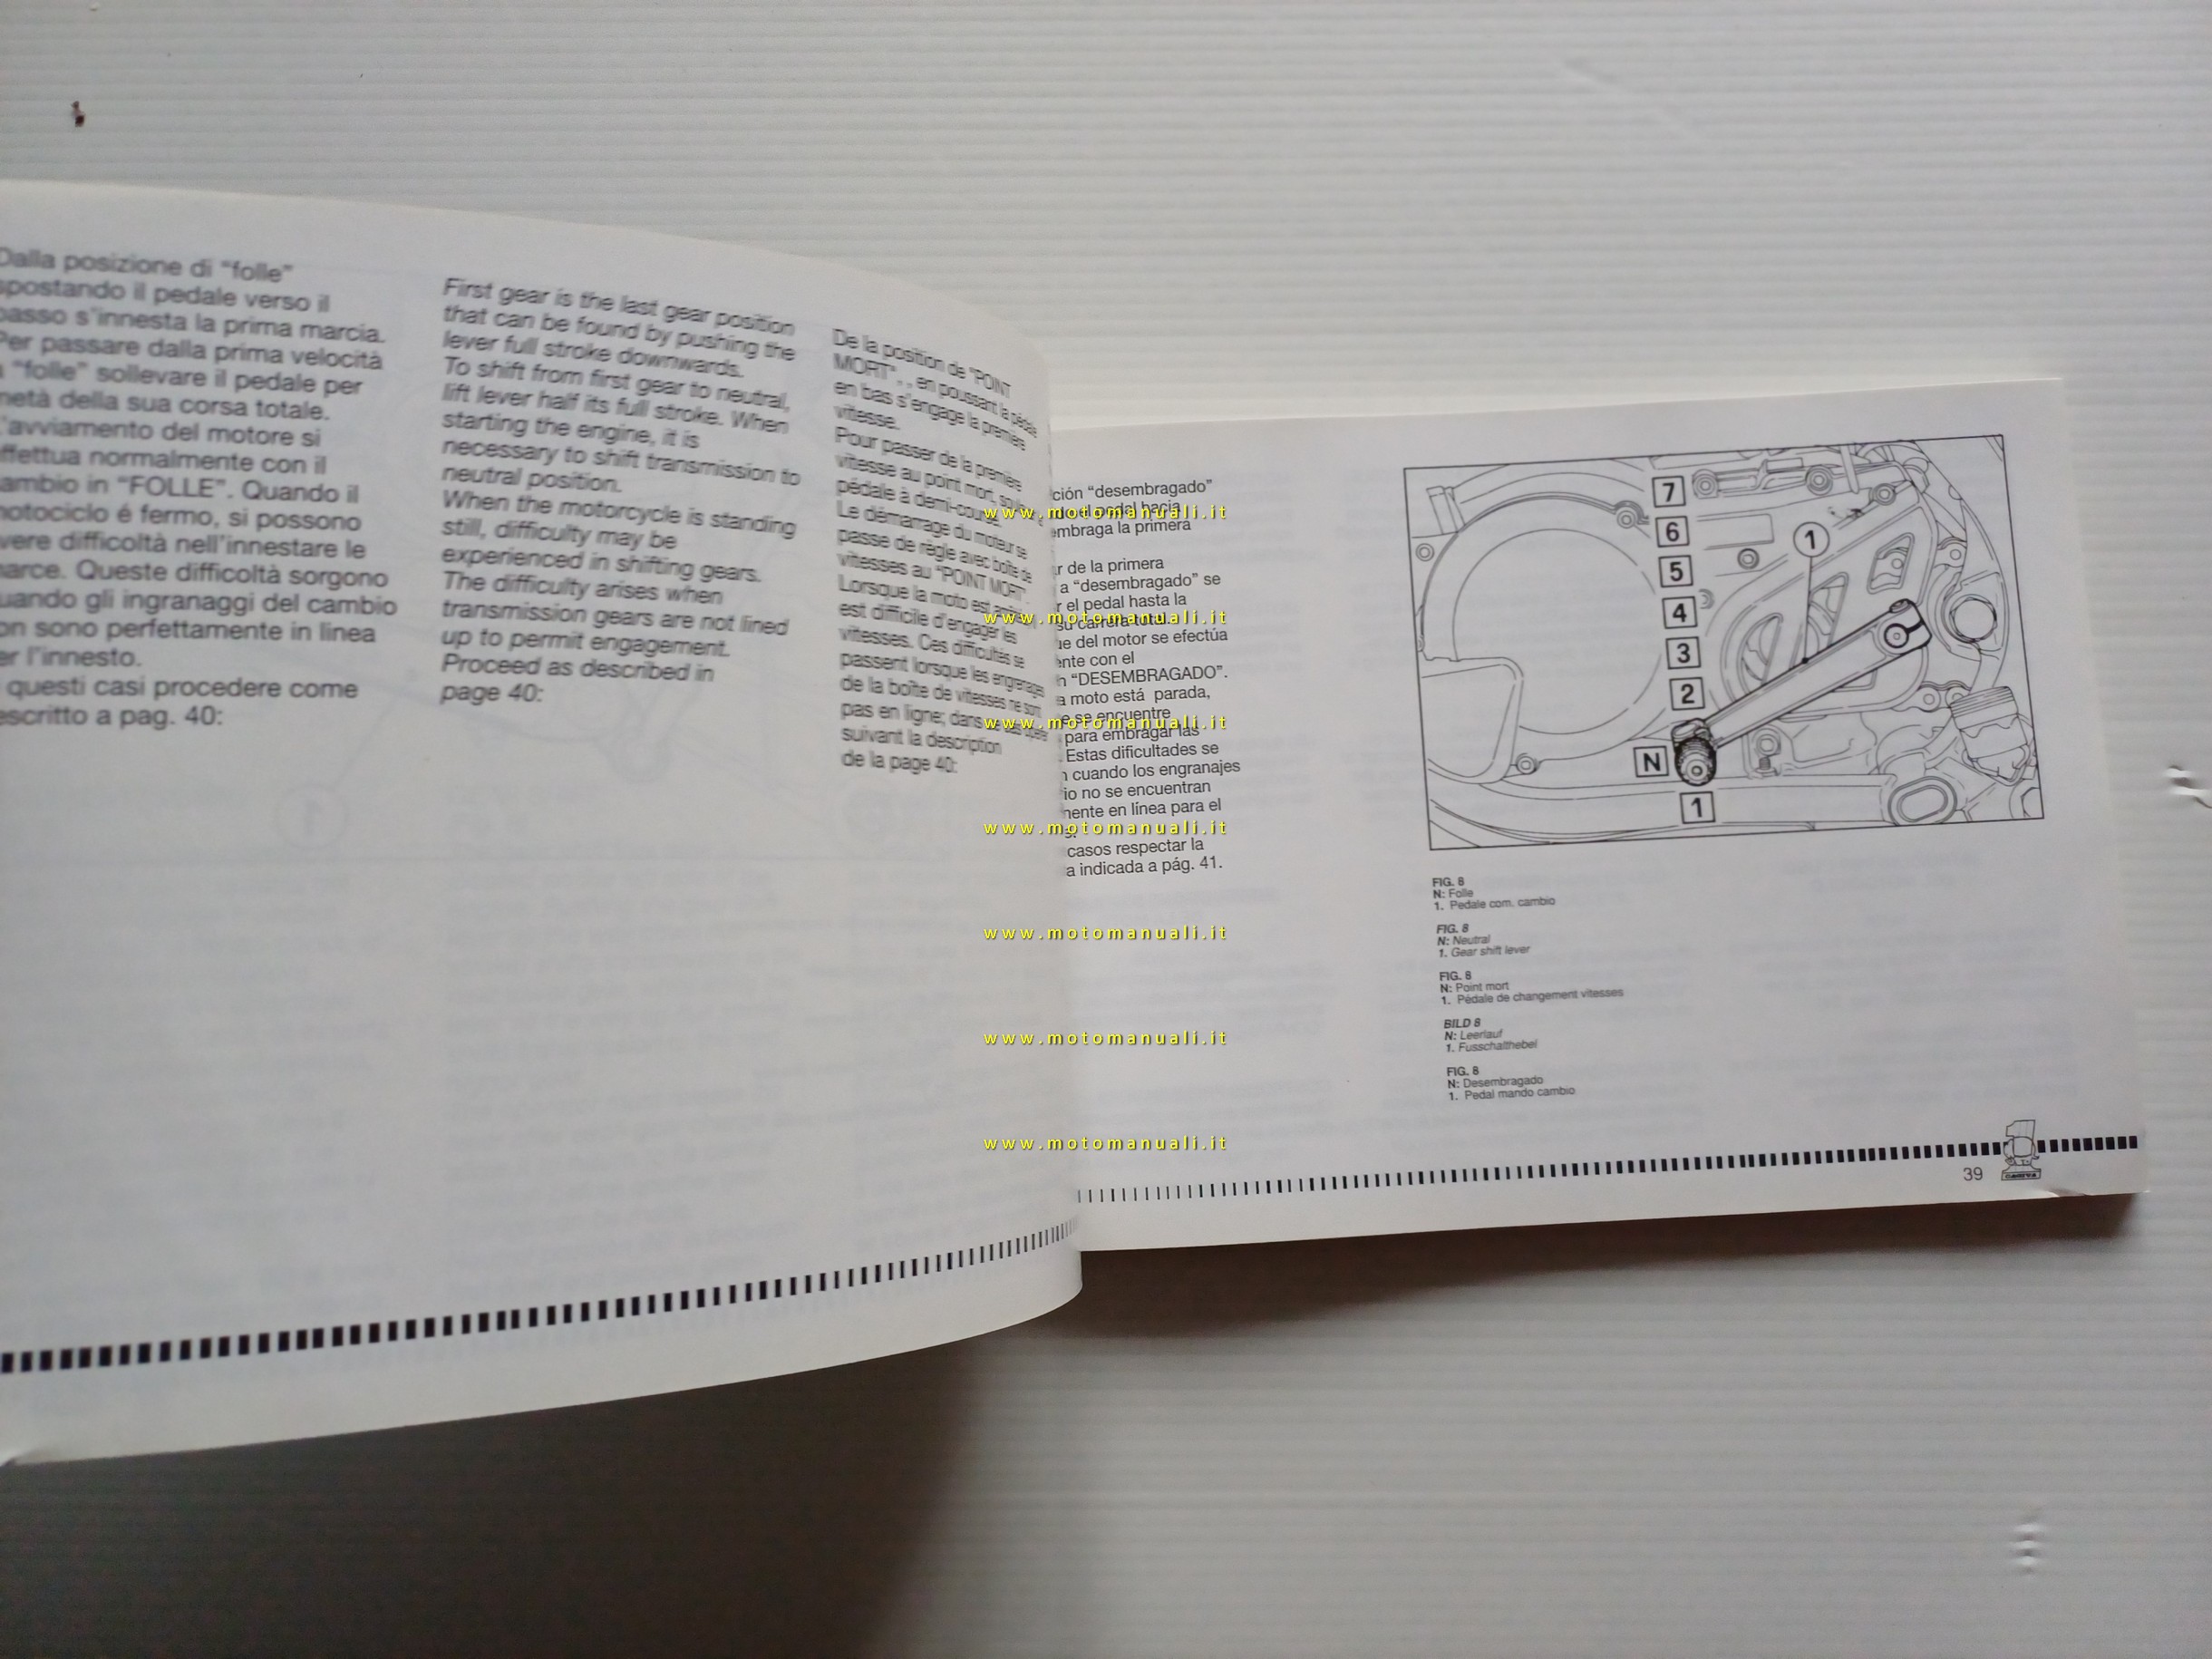 Dalla posizione di “folle”
spostando il pedale verso il
basso s'innesta la prima marcia.
Per passare dalla prima velocità
“folle” sollevare il pedale per
metà della sua corsa totale.
L'avviamento del motore si
effettua normalmente con il
cambio in “FOLLE”. Quando il
motociclo é fermo, si possono
avere difficoltà nell'innestare le
marce. Queste difficoltà sorgono
quando gli ingranaggi del cambio
non sono perfettamente in linea
per l'innesto.
questi casi procedere come
descritto a pag. 40:
First gear is the last gear position
that can be found by pushing the
lever full stroke downwards.
To shift from first gear to neutral,
lift lever half its full stroke. When
starting the engine, it is
necessary to shift transmission to
neutral position.
When the motorcycle is standing
still, difficulty may be
experienced in shifting gears.
The difficulty arises when
transmission gears are not lined
up to permit engagement.
Proceed as described in
page 40:
De la position de “POINT
MORT”, , en poussant la pédale
en bas s'engage la première
vitesse.
Pour passer de la première
vitesse au point mort,
pédale à demi-course.
Le démarrage du moteur se
passe de règle avec boîte de
vitesses au “POINT MORT”.
Lorsque la moto est
est difficile d'engager les
vitesses. Ces difficultés se
passent lorsque les engrenages
de la boîte de vitesses ne sont
pas en ligne; dans
suivant la description
de la page 40:
ción “desembragado”
el pedal hacia
embraga la primera
r de la primera
a “desembragado” se
r el pedal hasta la
su carrera total.
ue del motor se efectúa
ente con el
n “DESEMBRAGADO”.
a moto está parada,
e se encuentre
para embragar las
. Estas dificultades se
n cuando los engranajes
io no se encuentran
mente en línea para el
casos respectar la
a indicada a pág. 41.
7
6
5
4
3
2
N
1
1
FIG. 8
N: Folle
1. Pedale com. cambio
FIG. 8
N: Neutral
1. Gear shift lever
FIG. 8
N: Point mort
1. Pédale de changement vitesses
BILD 8
N: Leerlauf
1. Fusschalthebel
FIG. 8
N: Desembragado
1. Pedal mando cambio
39
CAGIVA
www.motomanuali.it
www.motomanuali.it
www.motomanuali.it
www.motomanuali.it
www.motomanuali.it
www.motomanuali.it
www.motomanuali.it